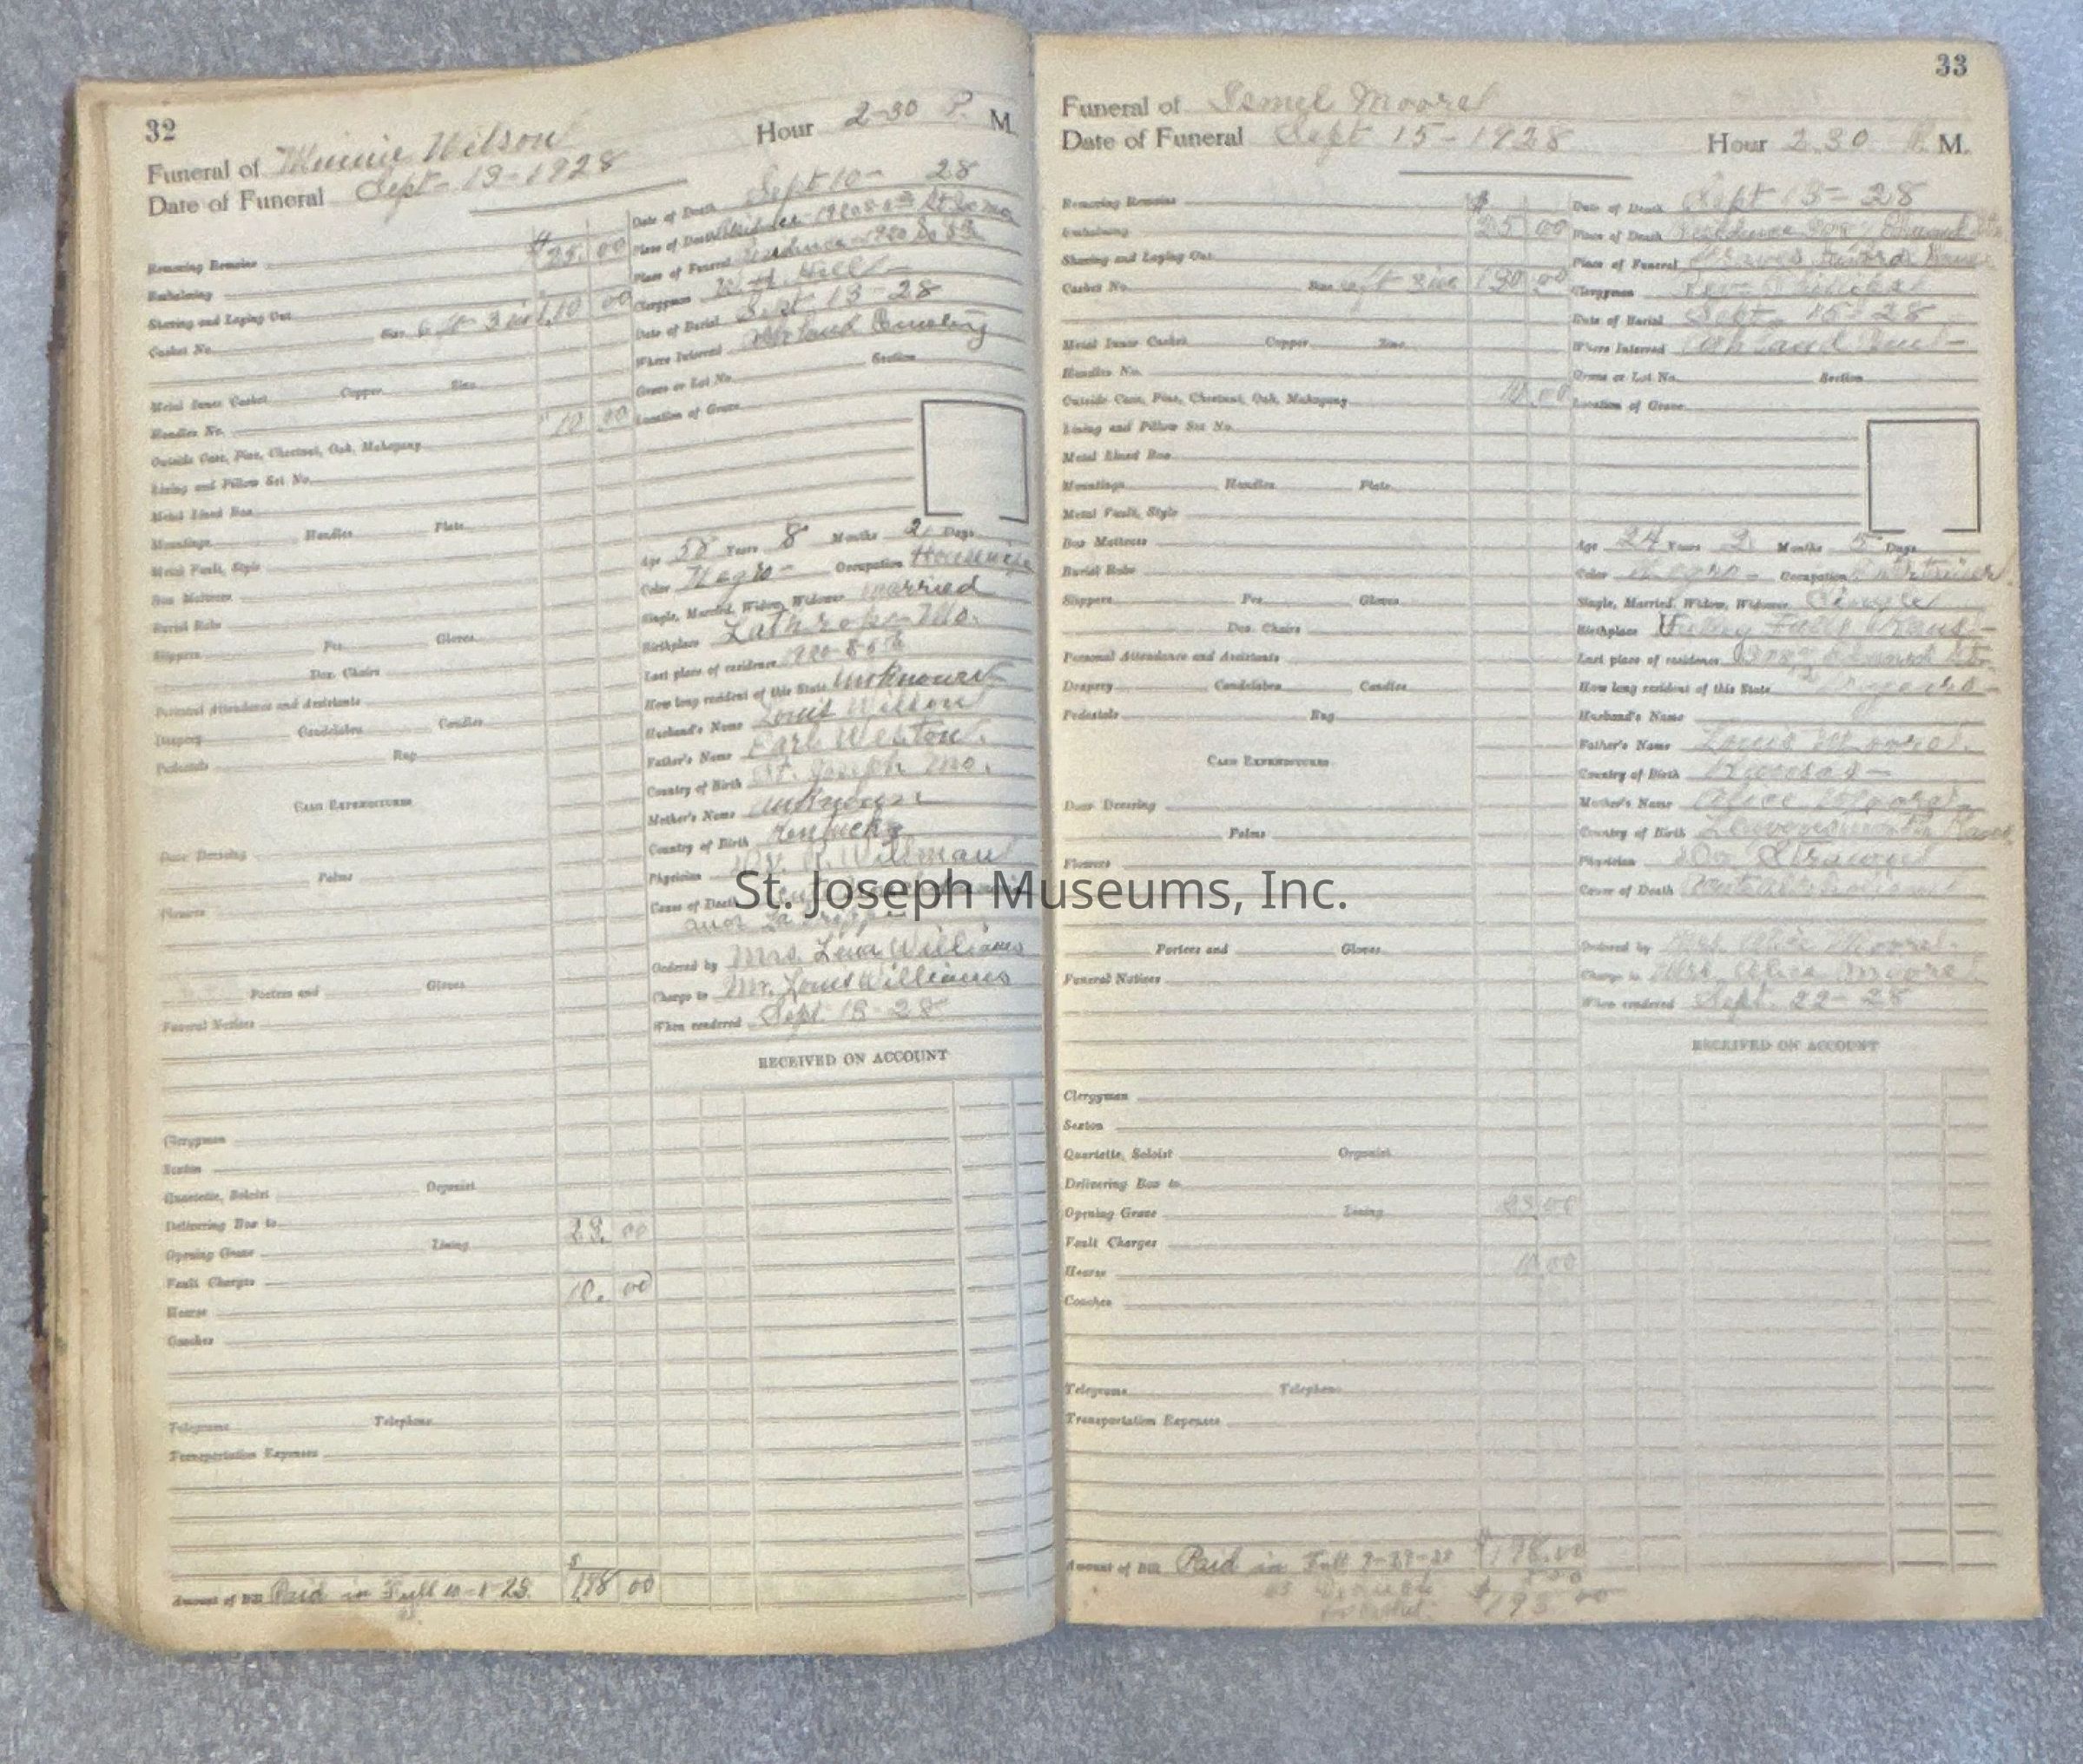 32
Hour 2-30 P. M.
Funeral of Minnie Wilson
Date of Funeral Sept-13-1928
Date of Death Sept 10- 28
Removing Remains
Place of Death
Embalming $25.00
Place of Funeral Residence
Shaving and Laying Out
Clergyman W. H. Hill
Casket No. Size 6 ft 3 in 110 00
Date of Burial Sept 13-28
Where Interred Ashland Cemetery
Metal Inner Casket Copper Zinc
Grave or Lot No. Section
Handles No.
Location of Grave
Outside Case, Pine, Chestnut, Oak, Mahogany 10 00
Lining and Pillow Set No.
Metal Lined Box
Mountings Handles Plate
Metal Vault, Style
Age 58 Years 8 Months 2 Days
Box Mattress
Color Negro- Occupation Housewife
Burial Robe
Single, Married, Widow, Widower married
Slippers Pr. Gloves
Birthplace Lathrop-Mo.
Doz. Chairs
Last place of residence
Personal Attendance and Assistants
How long resident of this State Unknown
Drapery Candelabra Candles
Husband's Name Louis Wilson
Pedestals Rug
Father's Name Earl Weston.
CASH EXPENDITURES
Country of Birth St. Joseph Mo.
Mother's Name unknown
Country of Birth Kentucky
Door Dressing
Physician
Palms
Cause of Death
Flowers
and La Grippe
Porters and Gloves
Ordered by Mrs. Lena Williams
Funeral Notices
Charge to Mr. Louis Williams
When rendered Sept. 18-28
RECEIVED ON ACCOUNT
Clergyman
Sexton
Quartette, Soloist Organist
Delivering Box to
Opening Grave Lining 23.00
Vault Charges
Hearse 10.00
Coaches
Telegrams Telephone
Transportation Expenses
Amount of Bill Paid in Full 10-1-28. $178 00
33
Funeral of Ismel Moore
Date of Funeral Sept 15-1928 Hour 2.30 P. M.
Removing Remains $
Date of Death Sept 13-28
Embalming 25 00
Place of Death Residence
Shaving and Laying Out
Place of Funeral
Casket No. Size 6 ft 3 in 130 00
Clergyman Rev.
Date of Burial Sept. 15-28
Metal Inner Casket Copper Zinc
Where Interred Ashland Cem-
Handles No.
Grave or Lot No. Section
Outside Case, Pine, Chestnut, Oak, Mahogany 10.00
Location of Grave
Lining and Pillow Set No.
Metal Lined Box
Mountings Handles Plate
Metal Vault, Style
Box Mattress
Age 24 Years 2 Months 5 Days
Burial Robe
Color Negro- Occupation
Slippers Pr. Gloves
Single, Married, Widow, Widower Single
Doz. Chairs
Birthplace Valley Falls Kans-
Personal Attendance and Assistants
Last place of residence
Drapery Candelabra Candles
How long resident of this State years
Pedestals Rug
Husband's Name
Father's Name Louis Moore.
CASH EXPENDITURES
Country of Birth Kansas-
Door Dressing
Mother's Name Alice Moore
Palms
Country of Birth Leavenworth Kans
Flowers
Physician Dr.
Cause of Death
Porters and Gloves
Ordered by Mrs. Alice Moore
Funeral Notices
Charge to Mrs. Alice Moore
When rendered Sept. 22-28
RECEIVED ON ACCOUNT
Clergyman
Sexton
Quartette, Soloist Organist
Delivering Box to
Opening Grave Lining 23.00
Vault Charges
Hearse 10.00
Coaches
Telegrams Telephone
Transportation Expenses
Amount of Bill Paid in Full $198.00
$193 00
St. Joseph Museums, Inc.